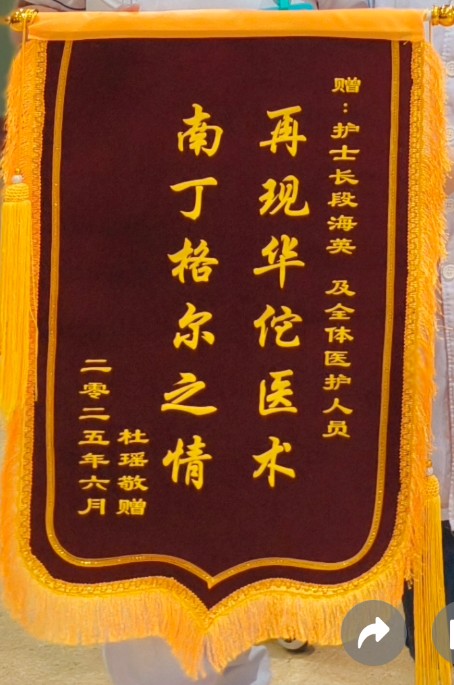 赠：护士长段海英 及全体医护人员
再现华佗医术
南丁格尔之情
杜瑶敬赠
二零二五年六月